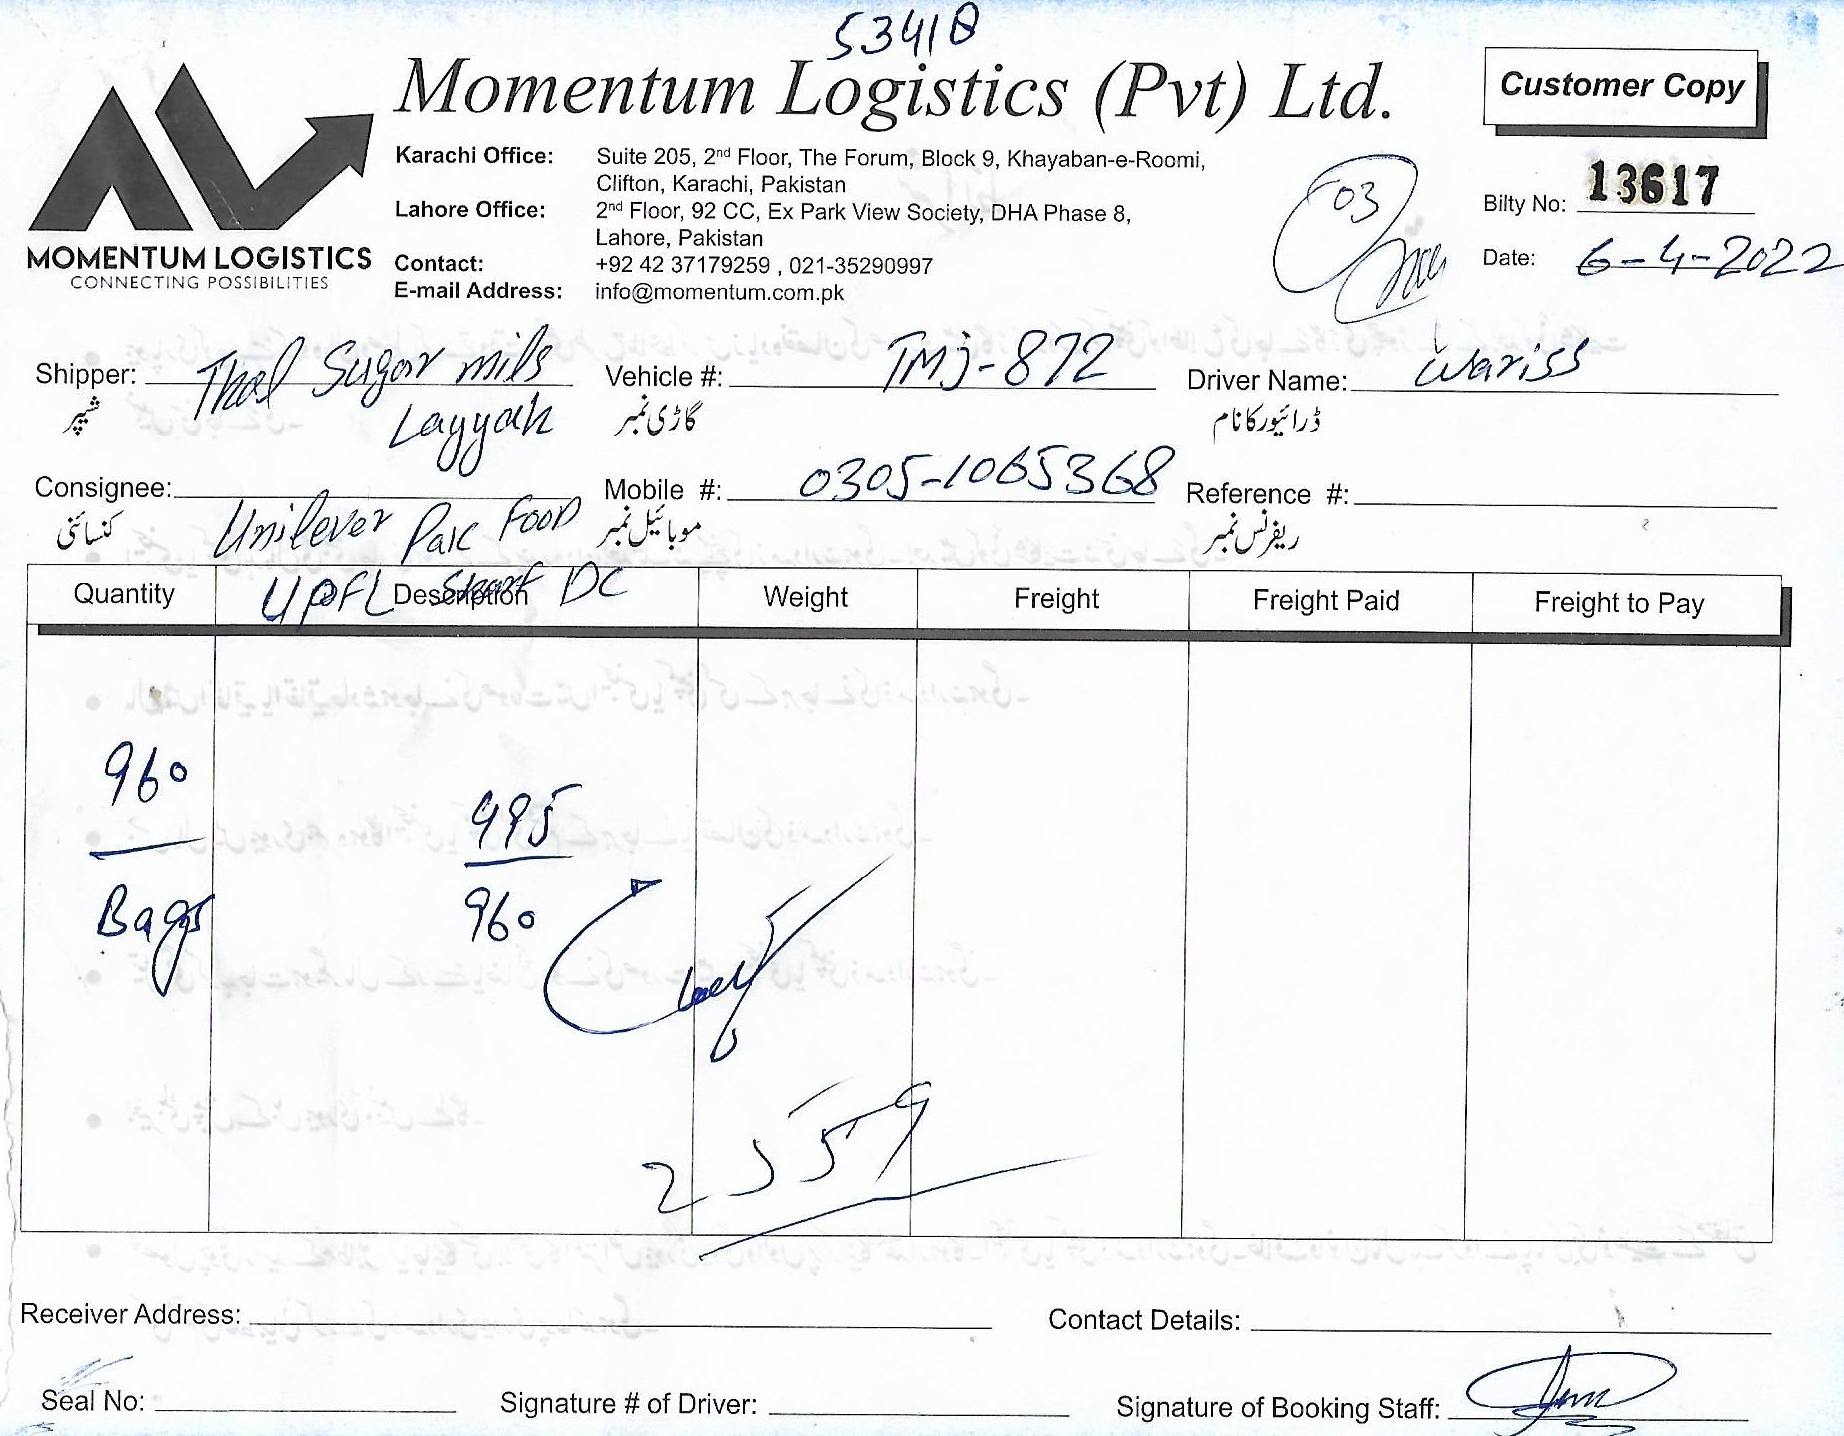 53418
Momentum Logistics (Pvt) Ltd.
Customer Copy
MOMENTUM LOGISTICS
CONNECTING POSSIBILITIES
Karachi Office: Suite 205, 2nd Floor, The Forum, Block 9, Khayaban-e-Roomi,
Clifton, Karachi, Pakistan
Lahore Office: 2nd Floor, 92 CC, Ex Park View Society, DHA Phase 8,
Lahore, Pakistan
Contact: +92 42 37179259 , 021-35290997
E-mail Address: info@momentum.com.pk
03
Bilty No: 13617
Date: 6-4-2022
Shipper: Thal Sugar mils Vehicle #: TMJ-872 Driver Name: Wariss
شیپر Layyah گاڑی نمبر ڈرائیور کا نام
Consignee: Mobile #: 0305-1065368 Reference #:
کنسائنی Unilever Pak Food موبائیل نمبر ریفرنس نمبر
UPFL DC
Quantity Description Weight Freight Freight Paid Freight to Pay
960
Bags
995
960
2559
Receiver Address: Contact Details:
Seal No: Signature # of Driver: Signature of Booking Staff: